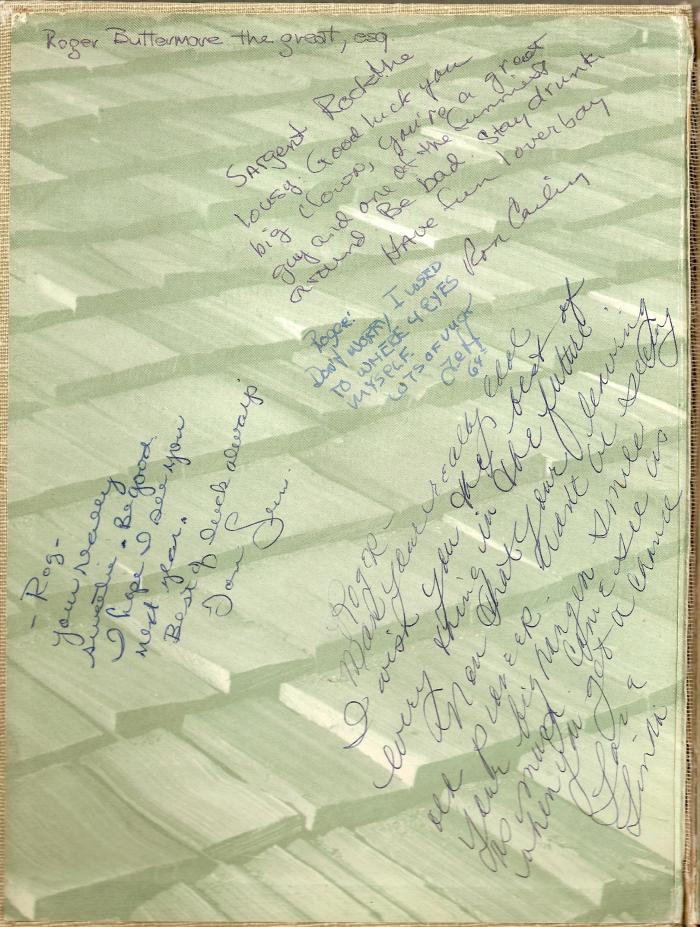 Roger Buttermore the great, esq
Sargent Rock the
lousy. Good luck you
big clown, you're a great
guy and one of the funniest
around Be bad. Stay drunk
Have fun loverboy
Ron
Roger:
Don't worry I used
to where 4 eyes
myself
lots of luck
Jeff
- Rog -
Your really
sweetie. Be good
I hope I see you
next year.
Best of luck always
Roger -
Man your really cool
I wish you the best of
every thing in the future.
Know that your leaving
old Pioneer
Your big
as much. Come see us
when you get a chance
Love
Linda